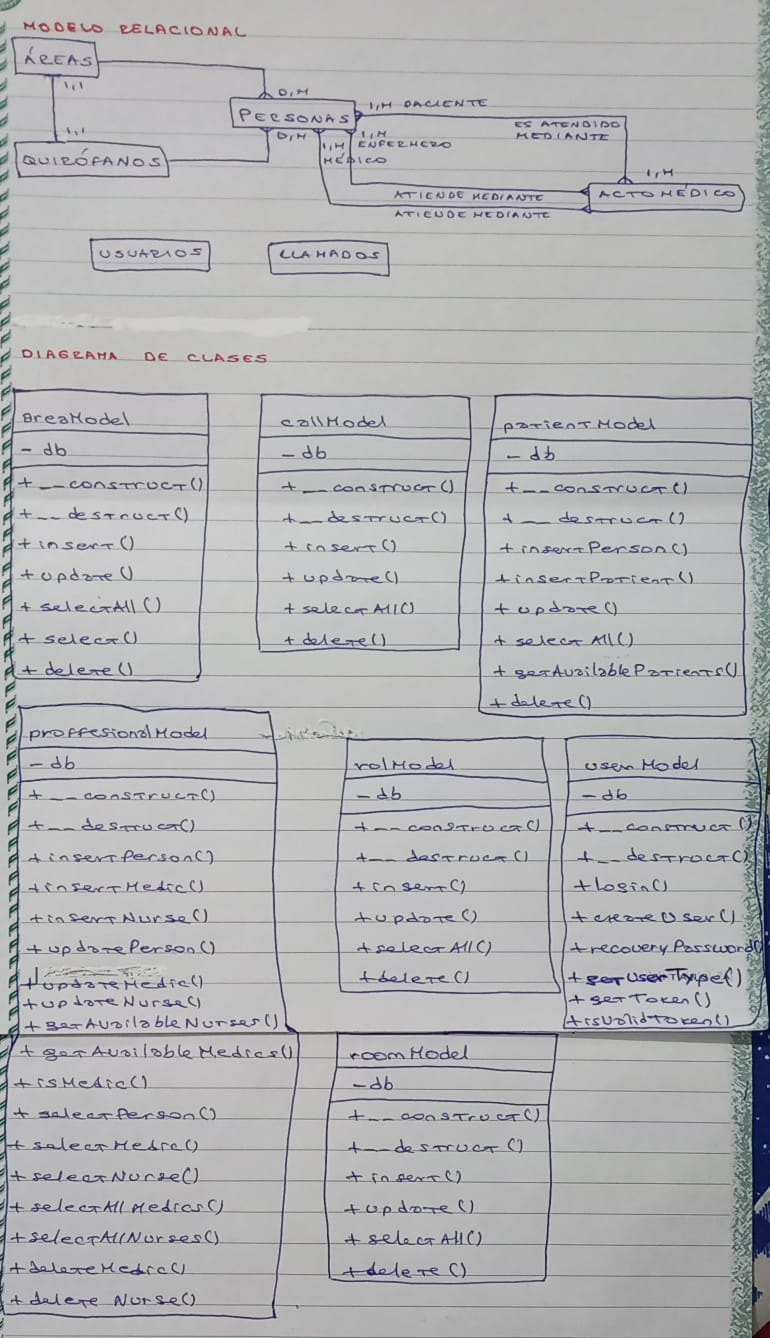 MODELO RELACIONAL
ÁREAS
1,1
0,M
1,M PACIENTE
PERSONAS
ES ATENDIDO
MEDIANTE
1,1
0,M
1,M
1,M ENFERMERO
MÉDICO
QUIRÓFANOS
1,M
ATIENDE MEDIANTE
ACTO MÉDICO
ATIENDE MEDIANTE
USUARIOS
LLAMADOS
DIAGRAMA DE CLASES
areaModel
- db
+__construct()
+__destruct()
+insert()
+update()
+selectAll()
+select()
+delete()
callModel
- db
+__construct()
+__destruct()
+insert()
+update()
+selectAll()
+delete()
patientModel
- db
+__construct()
+__destruct()
+insertPerson()
+insertPatient()
+update()
+selectAll()
+getAvailablePatients()
+delete()
proffesionalModel
- db
+__construct()
+__destruct()
+insertPerson()
+insertMedic()
+insertNurse()
+updatePerson()
+updateMedic()
+updateNurse()
+getAvailableNurses()
+getAvailableMedics()
+isMedic()
+selectPerson()
+selectMedic()
+selectNurse()
+selectAllMedics()
+selectAllNurses()
+deleteMedic()
+deleteNurse()
rolModel
- db
+__construct()
+__destruct()
+insert()
+update()
+selectAll()
+delete()
userModel
- db
+__construct()
+__destruct()
+login()
+createUser()
+recoveryPassword()
+getUserType()
+getToken()
+isValidToken()
roomModel
- db
+__construct()
+__destruct()
+insert()
+update()
+selectAll()
+delete()